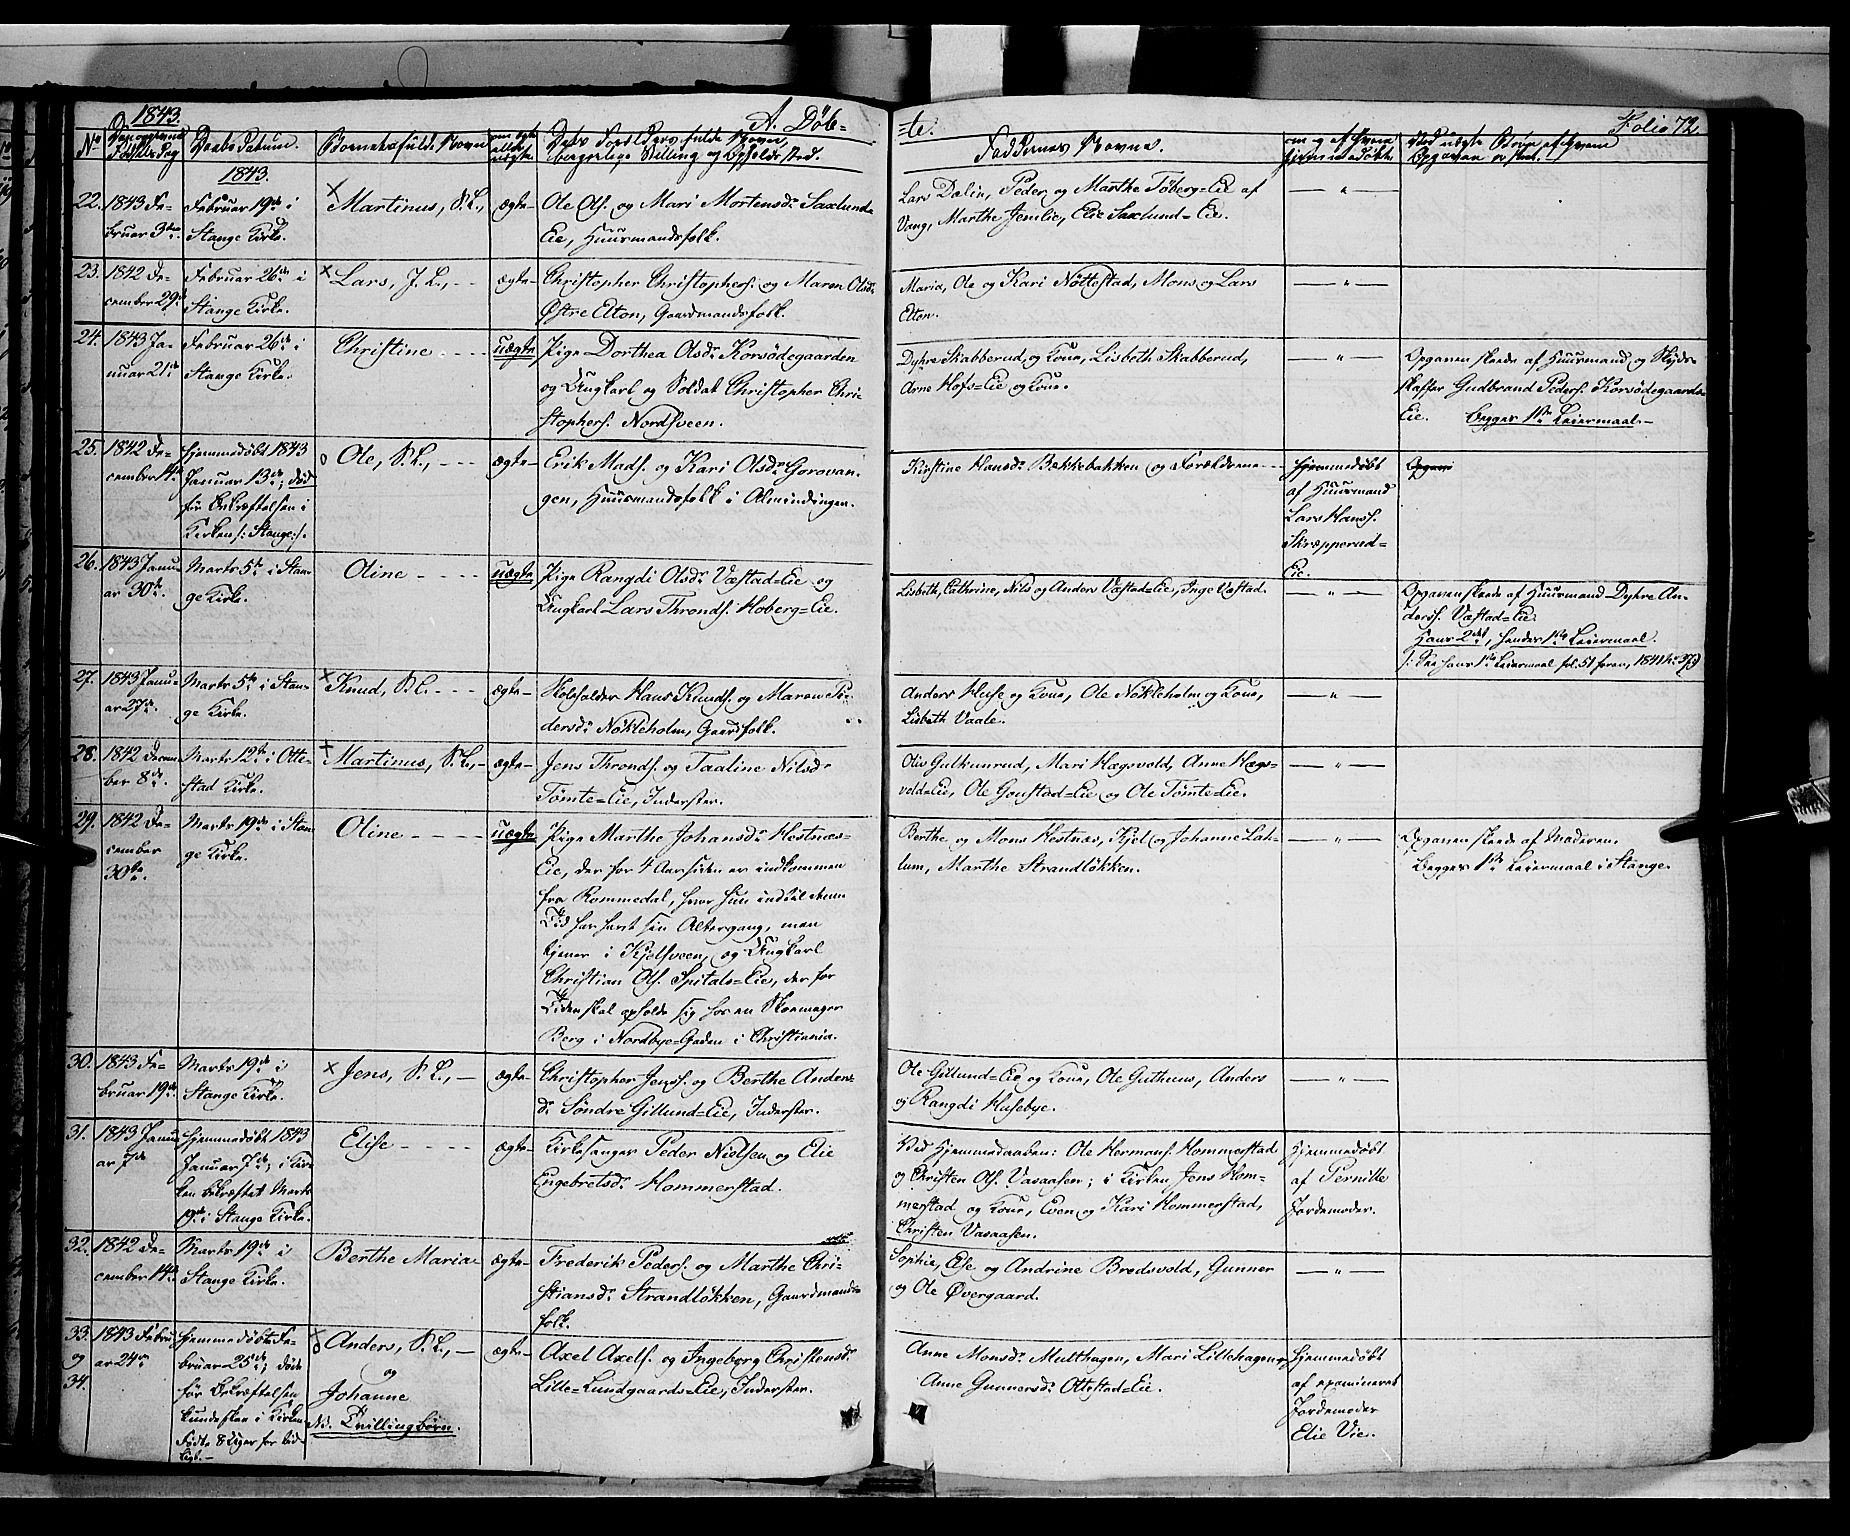 1843.
A. Døb=
=te.
Folio 72
No
Daabs Datum.
Barnets fulde Navn
Faddernes Navne.
1843.
22.
1843 Fe-
bruar 3die.
Februar 19de i
Stange Kirke.
Martinus, S. L.,
ægte-
Ole Ols. og Mari Mortensdr Saxlund=
Eie, Huusmandsfolk.
Lars Dælin, Peder og Marthe Töberg=Eie af
Vang, Marthe Jemlie, Elie Saxlund=Eie.
23.
1842 De-
cember 29de
Februar 26de i
Stange Kirke.
Lars, J. L.,
ægte-
Christopher Christophers. og Maren Olsdr
Østre Elton, Gaardmandsfolk.
Maria, Ole og Kari Nöttestad, Mons og Lars
Elton.
24.
1843 Ja-
nuar 21de
Februar 26de i
Stange Kirke.
Christine
uægte
Pige Dorthea Olsdr Korsödegaarden
og Ungkarl og Soldat Christopher Chri-
stophers. Nordsveen.
Dyhre Skabberud, og Kone, Lisbeth Skabberud,
Arne Hofs=Eie og Kone.
Opgaven skeede af Huusmand og Skyds-
skaffer Gudbrand Peders. Korsödegaards=
Eie. Begges 1ste Leiermaal.-
25.
1842 De-
cember 14de
Hjemmedøbt 1843
Januar 13de; død
før Bekræftelsen i
Kirken /: Stange :/.
Ole, S. L.,
ægte-
Erik Mads. og Kari Olsdr Gorovan-
gen, Huusmandsfolk i Almindingen.
Kirstine Hansdr Bekkebakken og Forældrene
Hjemmedøbt
af Huusmand
Lars Hans.
Skræpperud=
Eie.
26.
1843 Janu-
ar 30te.
Marts 5te i Stan-
ge Kirke.
Oline
uægte
Pige Rangdi Olsdr Væstad=Eie og
Ungkarl Lars Thronds. Hoberg=Eie.
Lisbeth, Cathrine, Nils og Anders Væstad=Eie, Inge Væstad.
Opgaven skeede af Huusmand Dyhre An-
ders. Væstad=Eie.
Hans 2det, hendes 1ste Leiermaal.
27.
1843 Janu-
ar 27de.
Marts 5te i Stan-
ge Kirke.
Knud, S. L.
ægte-
Skoleholder Hans Knuds. og Maren Pe-
dersdr Nökleholm, Gaardfolk.
Anders Huse og Kone, Ole Nökleholm og Kone,
Lisbeth Vaale.
28.
1842 Decem-
ber 8de.
Marts 12te i Otte-
stad Kirke.
Martinus, S. L.,
ægte-
Jens Thronds. og Taaline Nilsdr
Tömte=Eie, Inderster.
Olis Gulkunrud, Mari Hægsvold, Anne Hægs-
vold=Eie, Ole Goustad=Eie og Ole Tömte=Eie.
29.
1842 De-
cember
30te.
Marts 19de i Stan-
ge Kirke.
Oline
uægte
Pige Marthe Johansdr Hestnæs=
Eie, der for 4 Aar siden er indkommen
fra Rommedal, hvor hun indtil denne
Tid har havt sin Altergang, men
tjener i Kjelsveen, og Ungkarl
Christian Ols. Spitals=Eie, der for
Tiden skal opholde sig hos en Skomager
Berg i Nordbye-Gaden i Christiania.
Berthe og Mons Hestnæs, Kjel og Johanne Lah-
lum, Marthe Strandløkken.
Opgaven skeede af Moderen.
Begges 1ste Leiermaal i Stange.
30.
1843 Fe-
bruar 19de
Marts 19de i
Stange Kirke.
Jens, S. L.,
ægte-
Christopher Jens. og Berthe Anders-
dr Söndre Gillund=Eie, Inderster.
Ole Gillund=Eie og Kone, Ole Guthuus, Anders
og Rangdi Husebye.
31.
1843 Janu-
ar 7de
Hjemmedøbt 1843
Januar 7de; i Kir-
ken bekræftet Marts
19de i Stange Kirke.
Elise
ægte-
Kirkesanger Peder Nielsen og Elie
Engebretsdr Hommerstad.
Ved Hjemmedaaben: Ole Hermans. Hommerstad
og Christen Ols. Vasaasen; i Kirken Jens Hom-
merstad og Kone, Even og Kari Hommerstad,
Christen Vasaasen.
Hjemmedøbt
af Pernille
Jordemoder.
32.
1842 De-
cember 14de
Marts 19de i
Stange Kirke.
Berthe Maria
ægte-
Frederik Peders. og Marthe Chri-
stiansdr Strandløkken, Gaardmands-
folk.
Sophie, Else og Andrine Bredsvold, Gunner
og Ole Øvergaard.
33.
og
34.
1843 Febru-
ar 24de
Hjemmedøbt Fe-
bruar 25de; døde
før Bekræftelsen
kunde skee i Kirken.
Anders, S. L.,
og
Johanne
NB. Tvillingbørn.
ægte-
Axel Axels. og Ingeborg Christensdr
Lille=Lundgaards=Eie, Inderster.
Anne Monsdr Multhagen, Mari Lillehagen,
Anne Gunnersdr Ottestad=Eie.
Hjemmedøbt
af examineret
Jordemoder
Elie Vie.